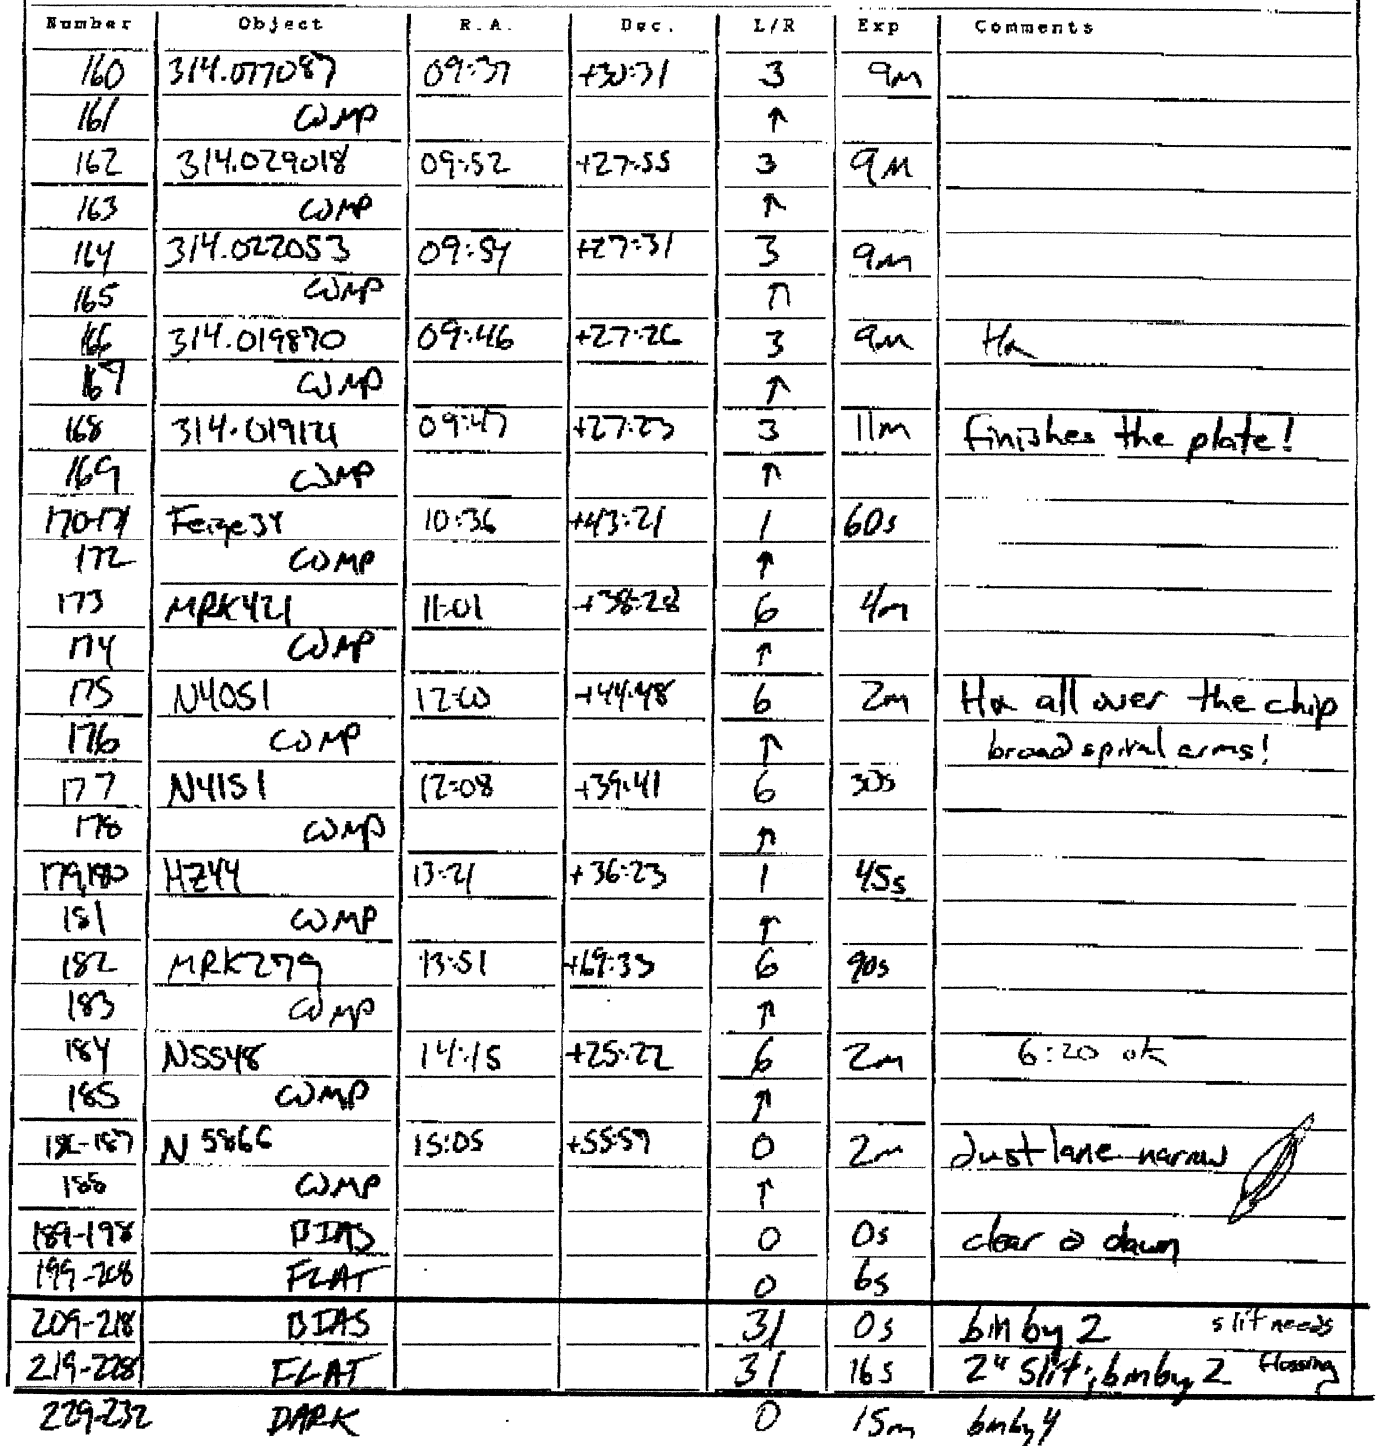 Number Object R.A. Dec. L/R Exp Comments
160 314.077087 09:37 +30:31 3 9m
161 COMP ↑
162 314.029018 09:52 +27:55 3 9m
163 COMP ↑
164 314.022053 09:54 +27:31 3 9m
165 COMP ↑
166 314.019870 09:46 +27:26 3 9m Hα
167 COMP ↑
168 314.019121 09:47 +27:23 3 11m finishes the plate!
169 COMP ↑
170-171 Feige34 10:36 +43:21 1 60s
172 COMP ↑
173 MRK421 11:01 +38:28 6 4m
174 COMP ↑
175 N4051 12:00 +44:48 6 2m Hα all over the chip
176 COMP ↑ broad spiral arms!
177 N4151 12:08 +39:41 6 30s
178 COMP ↑
179,180 HZ44 13:21 +36:23 1 45s
181 COMP ↑
182 MRK279 13:51 +69:33 6 90s
183 COMP ↑
184 N5548 14:15 +25:22 6 2m 6:20 ok
185 COMP ↑
186-187 N5866 15:05 +55:57 0 2m dust lane narrow
188 COMP ↑
189-198 BIAS 0 0s clear @ dawn
199-208 FLAT 0 6s
209-218 BIAS 31 0s bin by 2 slit needs
219-228 FLAT 31 16s 2" slit; bin by 2 flossing
229-232 DARK 0 15m bin by 4